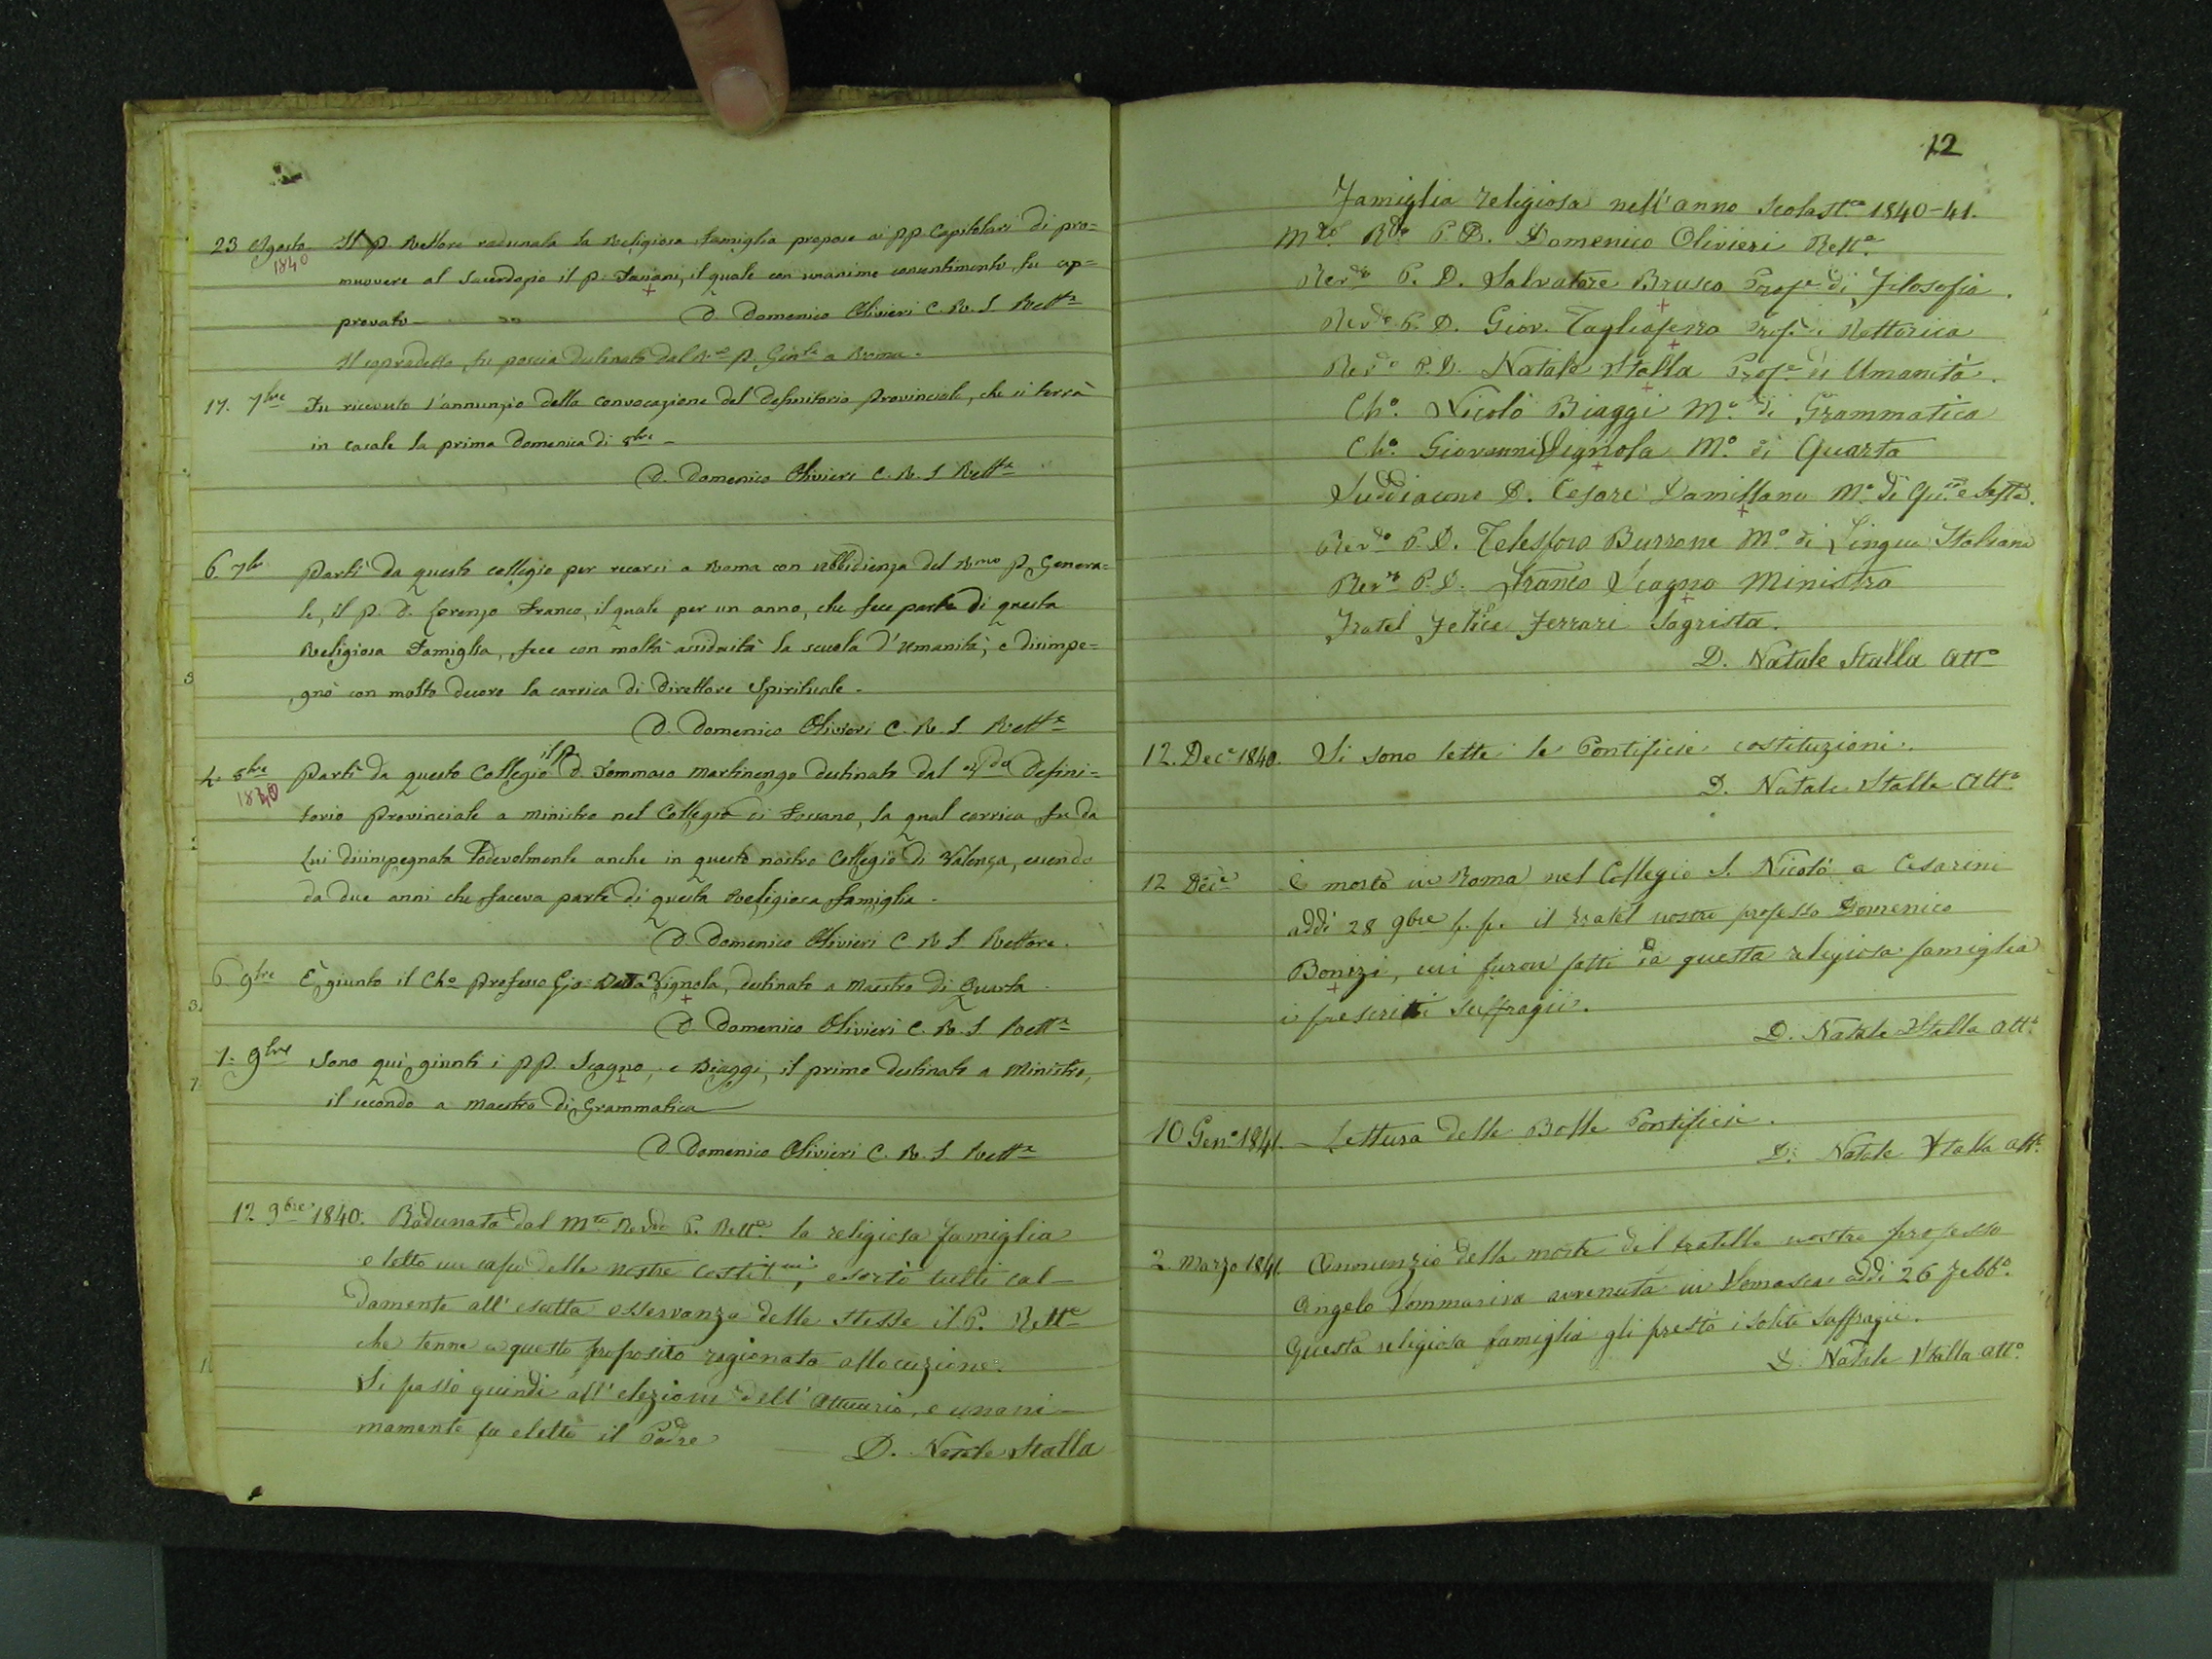 23 Agosto Il P. Rettore radunata la Religiosa famiglia propose ai PP. Capitolari di pro=
1840
muovere al Sacerdozio il P. Faviani, il quale con unanime consentimento fu ap=
provato — D. Domenico Olivieri C. R. S. Rett.e
Il sopradetto fu poscia destinato dal R.mo P. Gen.le a Roma.
17. 7bre Fu ricevuto l'annunzio della convocazione del Definitorio Provinciale, che si terrà
in casale la prima Domenica di 8bre —
D. Domenico Olivieri C. R. S. Rett.e
6. 7bre Partì da questo collegio per recarsi a Roma con ubbidienza del R.mo P. Genera=
le, il P. D. Lorenzo Franco, il quale per un anno, che fece parte di questa
Religiosa Famiglia, fece con molta assiduità la scuola d'Umanità, e disimpe=
gnò con molto decoro la carrica di Direttore Spirituale.
D. Domenico Olivieri C. R. S. Rett.e
il P.
4. 8bre Partì da questo Collegio D. Tommaso Martinengo destinato dal Defini=
1840
torio Provinciale a Ministro nel Collegio di Fossano, la qual carrica fu da
Lui disimpegnata lodevolmente anche in questo nostro Collegio di Valenza, essendo
da due anni che faceva parte di questa Religiosa famiglia.
D. Domenico Olivieri C. R. S. Rettore.
6. 9bre È giunto il Ch.o Professo Gio: Batta Vignola, destinato a Maestro di Quarta
D. Domenico Olivieri C. R. S. Rett.e
7. 9bre Sono quì giunti i PP. Scagno, e Biaggi, il primo destinato a Ministro,
il secondo a maestro di Grammatica
D. Domenico Olivieri C. R. S. Rett.e
12 9bre 1840. Radunata dal M.to Rev.do P. Rett.e la religiosa famiglia
e letto un capo delle nostre costit.ni, esortò tutti cal-
damente all'esatta osservanza delle stesse il P. Rett.e
che tenne a questo proposito ragionata allocuzione.
Si passò quindi all'elezione dell'Attuario, e unani-
mamente fu eletto il Padre D. Natale Stalla
12
Famiglia religiosa nell'anno scolast.co 1840-41.
M.to R.do P. D. Domenico Olivieri Rett.e
Rev.do P. D. Salvatore Brusco Prof.e di Filosofia.
Rev.do P. D. Giov. Tagliaferro Prof.e di Rettorica
Rev.do P. D. Natale Stalla Prof.e di Umanità.
Ch.o Nicolò Biaggi M.o di Grammatica
Ch.o Giovanni Vignola M.o di Quarta
Suddiacono D. Cesare Damillano M.o di Qu.ta e Sesta.
Rev.do P. D. Telesforo Burrone M.o di Lingua Italiana
Rev.do P. D. Franco Scagno Ministro
Fratel Felice Ferrari Sagrista.
D. Natale Stalla Att.o
12. Dec.e 1840. Si sono lette le Pontificie costituzioni.
D. Natale Stalla Att.o
12 Dec.e È morto in Roma nel Collegio S. Nicolò a Cesarini
addì 28 9bre p. p. il fratel nostro professo Domenico
Bonizi, cui furon fatti da questa religiosa famiglia
i prescritti suffragii.
D. Natale Stalla Att.o
10 Gen.o 1841. Lettura delle Bolle Pontificie.
D. Natale Stalla Att.o
2. Marzo 1841. Annunzio della morte del fratello nostro professo
Angelo Sommariva avvenuta in Somasca addì 26 Febb.o
Questa religiosa famiglia gli prestò i soliti suffragii.
D. Natale Stalla Att.o